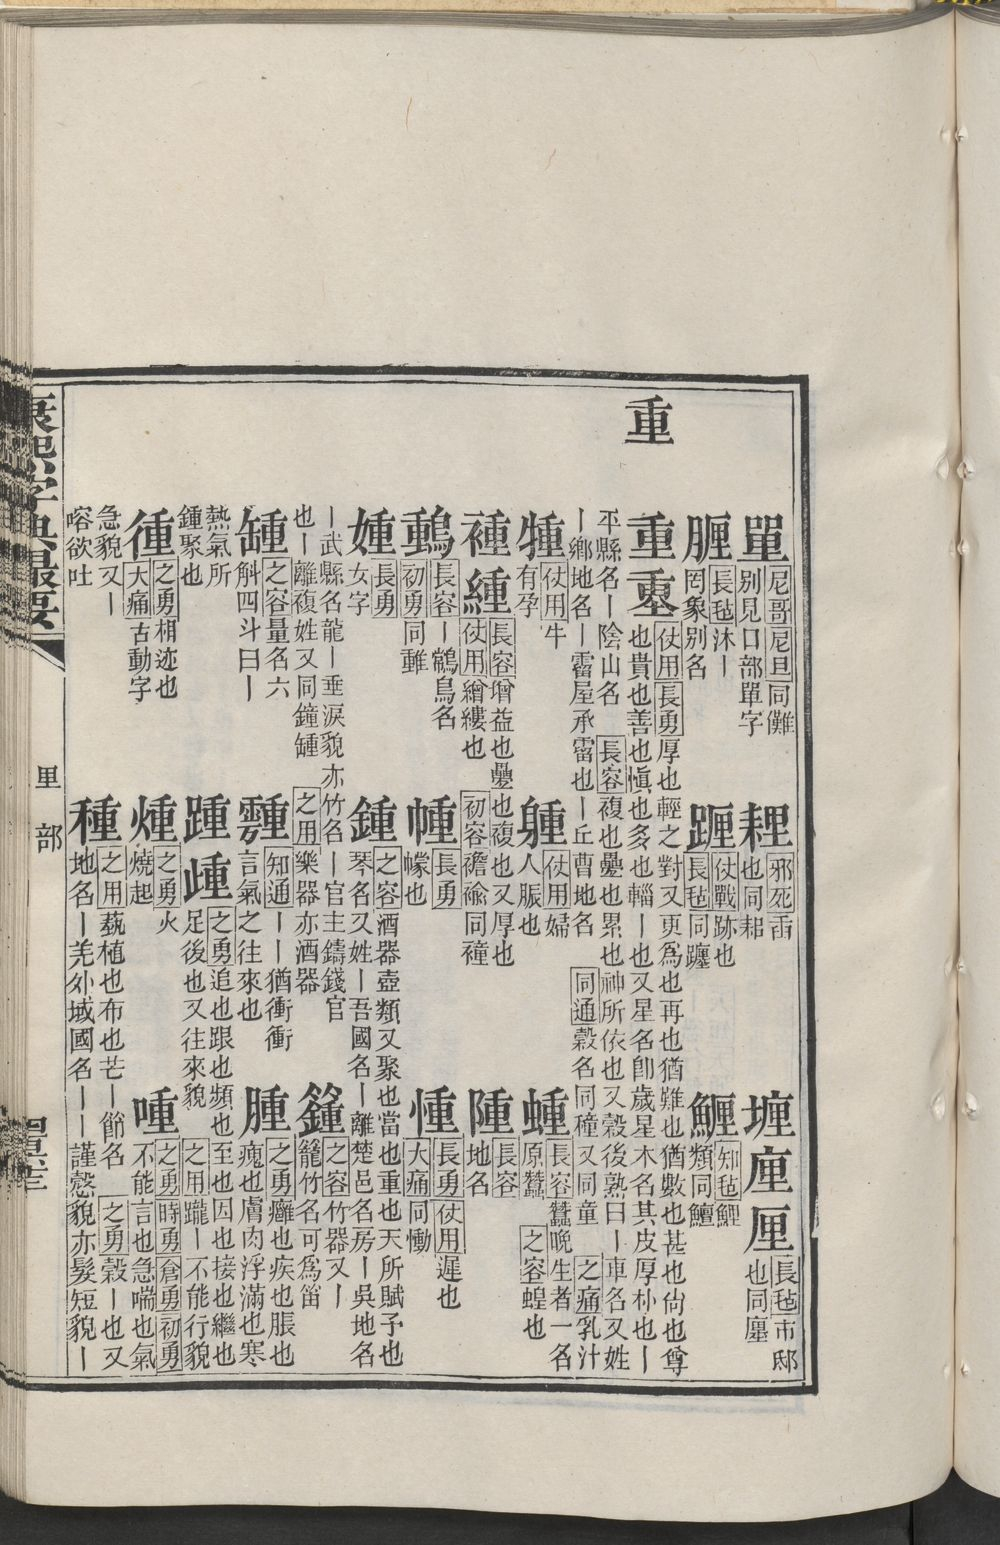 單 尼哥 尼旦 同儺 別見口部單字
耝 邪死 臿也同耜
堙厘厘 長毡 市邸也同廛
長毡 沐丨罔象別名
仗戰 跡也 長毡 同躔
知毡 鯉類同鱣
重
重 仗用 長勇 厚也輕之對又更爲也再也猶難也猶數也甚也尙也尊
也貴也善也愼也多也輜丨也又星名卽歲星木名其皮厚朴也丨
丕縣名丨陰山名 長容 複也疊也累也神所依也又穀後熟曰丨車名又姓
丨鄉地名丨霤屋承霤也丨丘曹地名 同通 穀名同穜又同童 之痛 乳汁
㹞 仗用 牛有孕
仗用 婦人脤也
蝩 長容 蠶晚生者一名原蠶 之容 蝗也
褈緟 長容 增益也疊也複也又厚也
仗用 繒縷也 初容 襜褕同襱
陲 長容 地名
長容 丨鶴鳥名 初勇 同雖
㡖 長勇 幏也
憅 長勇 仗用 遲也 大痛 同慟
媑 長勇 女字
鍾 之容 酒器壺類又聚也當也重也天所賦予也
琴名又姓丨吾國名丨離楚邑名房丨吳地名
丨武縣名龍丨垂淚貌亦竹名丨官主鑄錢官
也丨離複姓又同鐘 之用 樂器亦酒器
之容 竹器又丨籠竹名可爲笛
之容 量名六斛四斗曰丨
知通 丨丨猶衝衝言氣之往來也
腫 之勇 癰也疾也脹也瘣也膚肉浮滿也寒
熱氣所鍾聚也
踵歱 之勇 追也跟也頻也至也因也接也繼也
足後也又往來貌 之用 躘丨不能行貌
徸 之勇 相迹也 大痛 古動字
煄 之勇 火燒起
喠 之勇 時勇 倉勇 初勇 不能言也急喘也氣
急貌又丨㗖欲吐
種 之用 蓺植也布也芒丨節名 之勇 穀丨也又
地名丨羌外域國名丨丨謹愨貌亦髮短貌丨
康熙字典撮要
里部